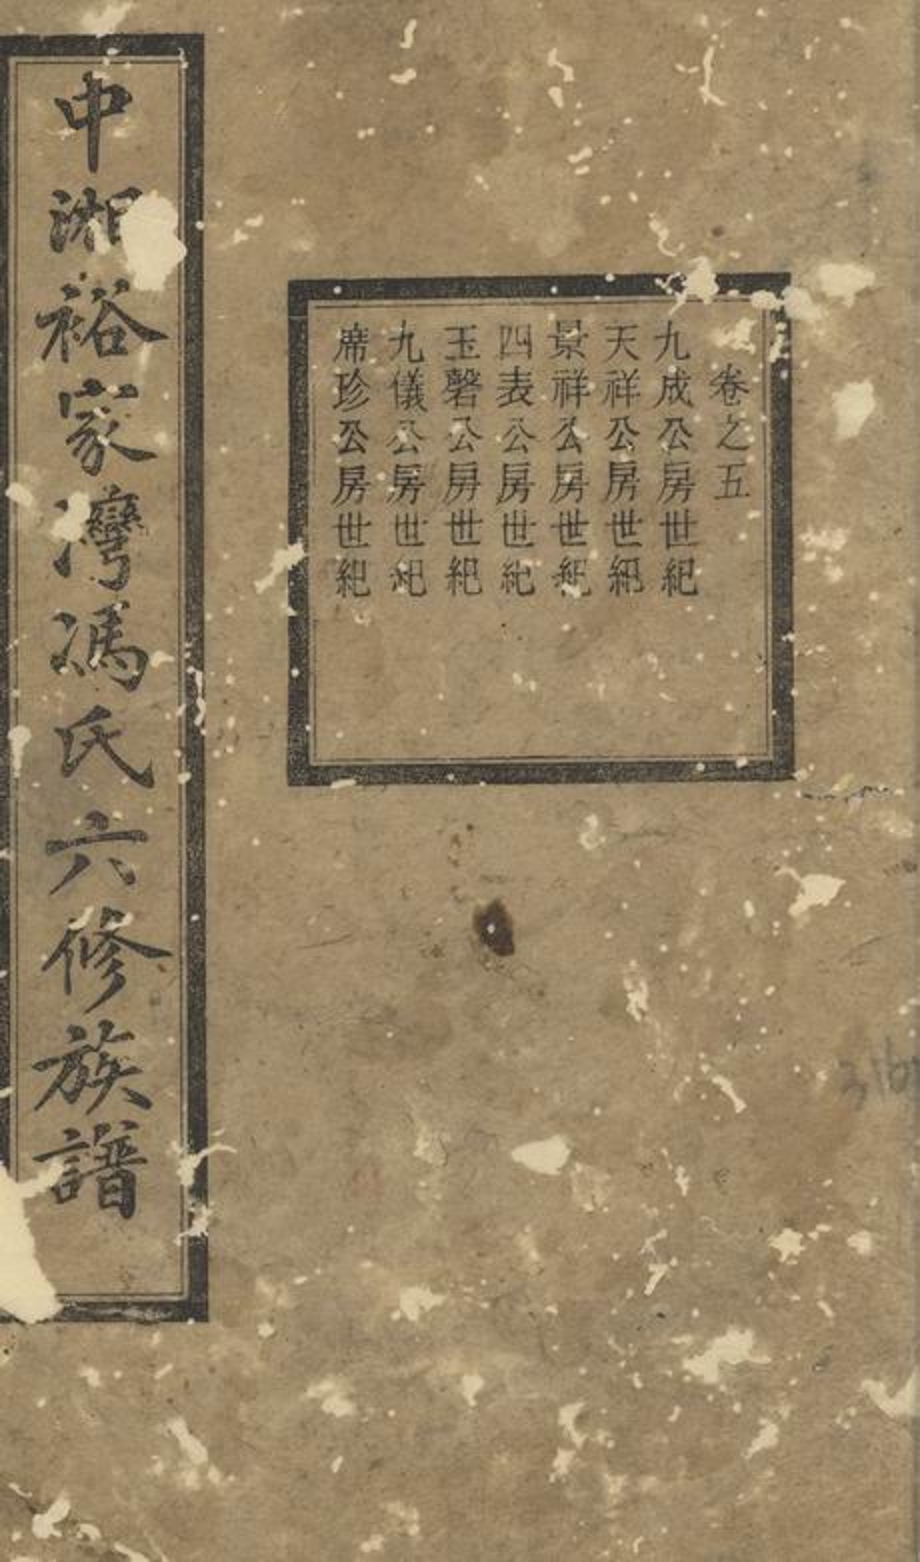 卷之五
九成公房世紀
天祥公房世紀
景祥公房世紀
四表公房世紀
玉磬公房世紀
九儀公房世紀
席珍公房世紀
中湘裕家灣馮氏六修族譜
316